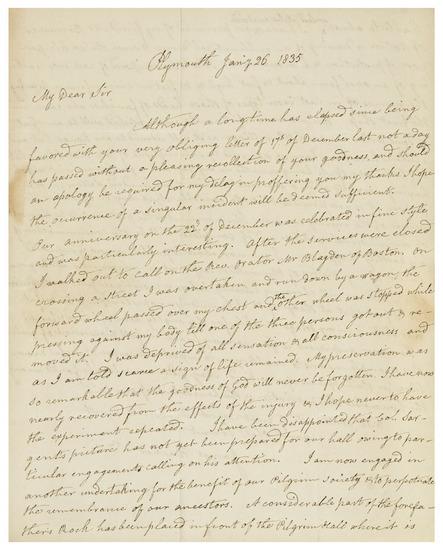 Plymouth Jany 26 1835
My Dear Sir
Although a long time has elapsed since being
favored with your very obliging letter of 17th of December last not a day
has passed without a pleasing recollection of your goodness, and should
an apology be required for my delay in proffering you my thanks I hope
the occurrence of a singular incident will be deemed sufficient.
Our anniversary on the 22d of December was celebrated in fine style
and was particularly interesting. After the services were closed
I walked out to call on the Rev. Orator Mr Blagden of Boston. On
crossing a Street I was overtaken and run down by a wagon, the
forward wheel passed over my chest and the other wheel was stopped while
pressing against my body till one of the three persons got out & re-
moved it. I was deprived of all sensation & all consciousness and
as I am told scarce a sign of life remained. My preservation was
so remarkable that the goodness of God will never be forgotten. I have now
nearly recovered from the effects of the injury & I hope never to have
the experiment repeated. I have been disappointed that Col. Sar-
gent's picture has not yet been prepared for our hall owing to par-
ticular engagements calling on his attention. I am now engaged in
another undertaking for the benefit of our Pilgrim Society & to perpetuate
the remembrance of our ancestors. A considerable part of the forefa-
thers Rock has been placed in front of the Pilgrim Hall where it is